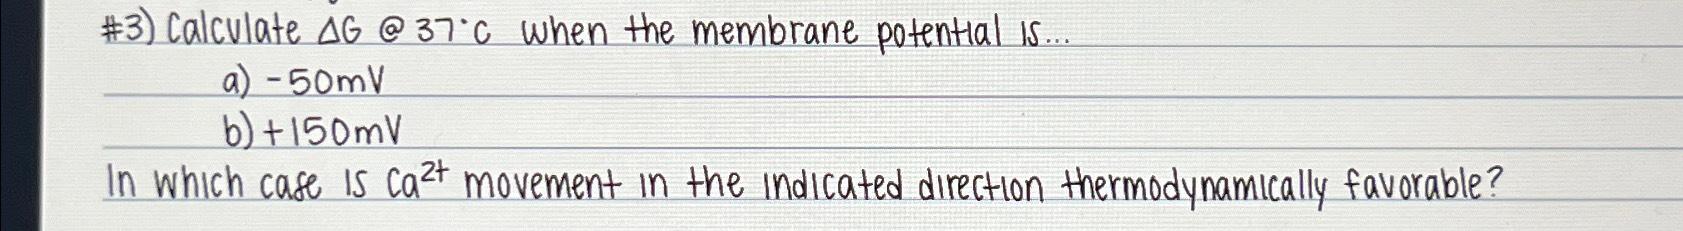 #3) Calculate ΔG @ 37°C when the membrane potential is...
a) -50mV
b) +150mV
In which case is Ca²⁺ movement in the indicated direction thermodynamically favorable?